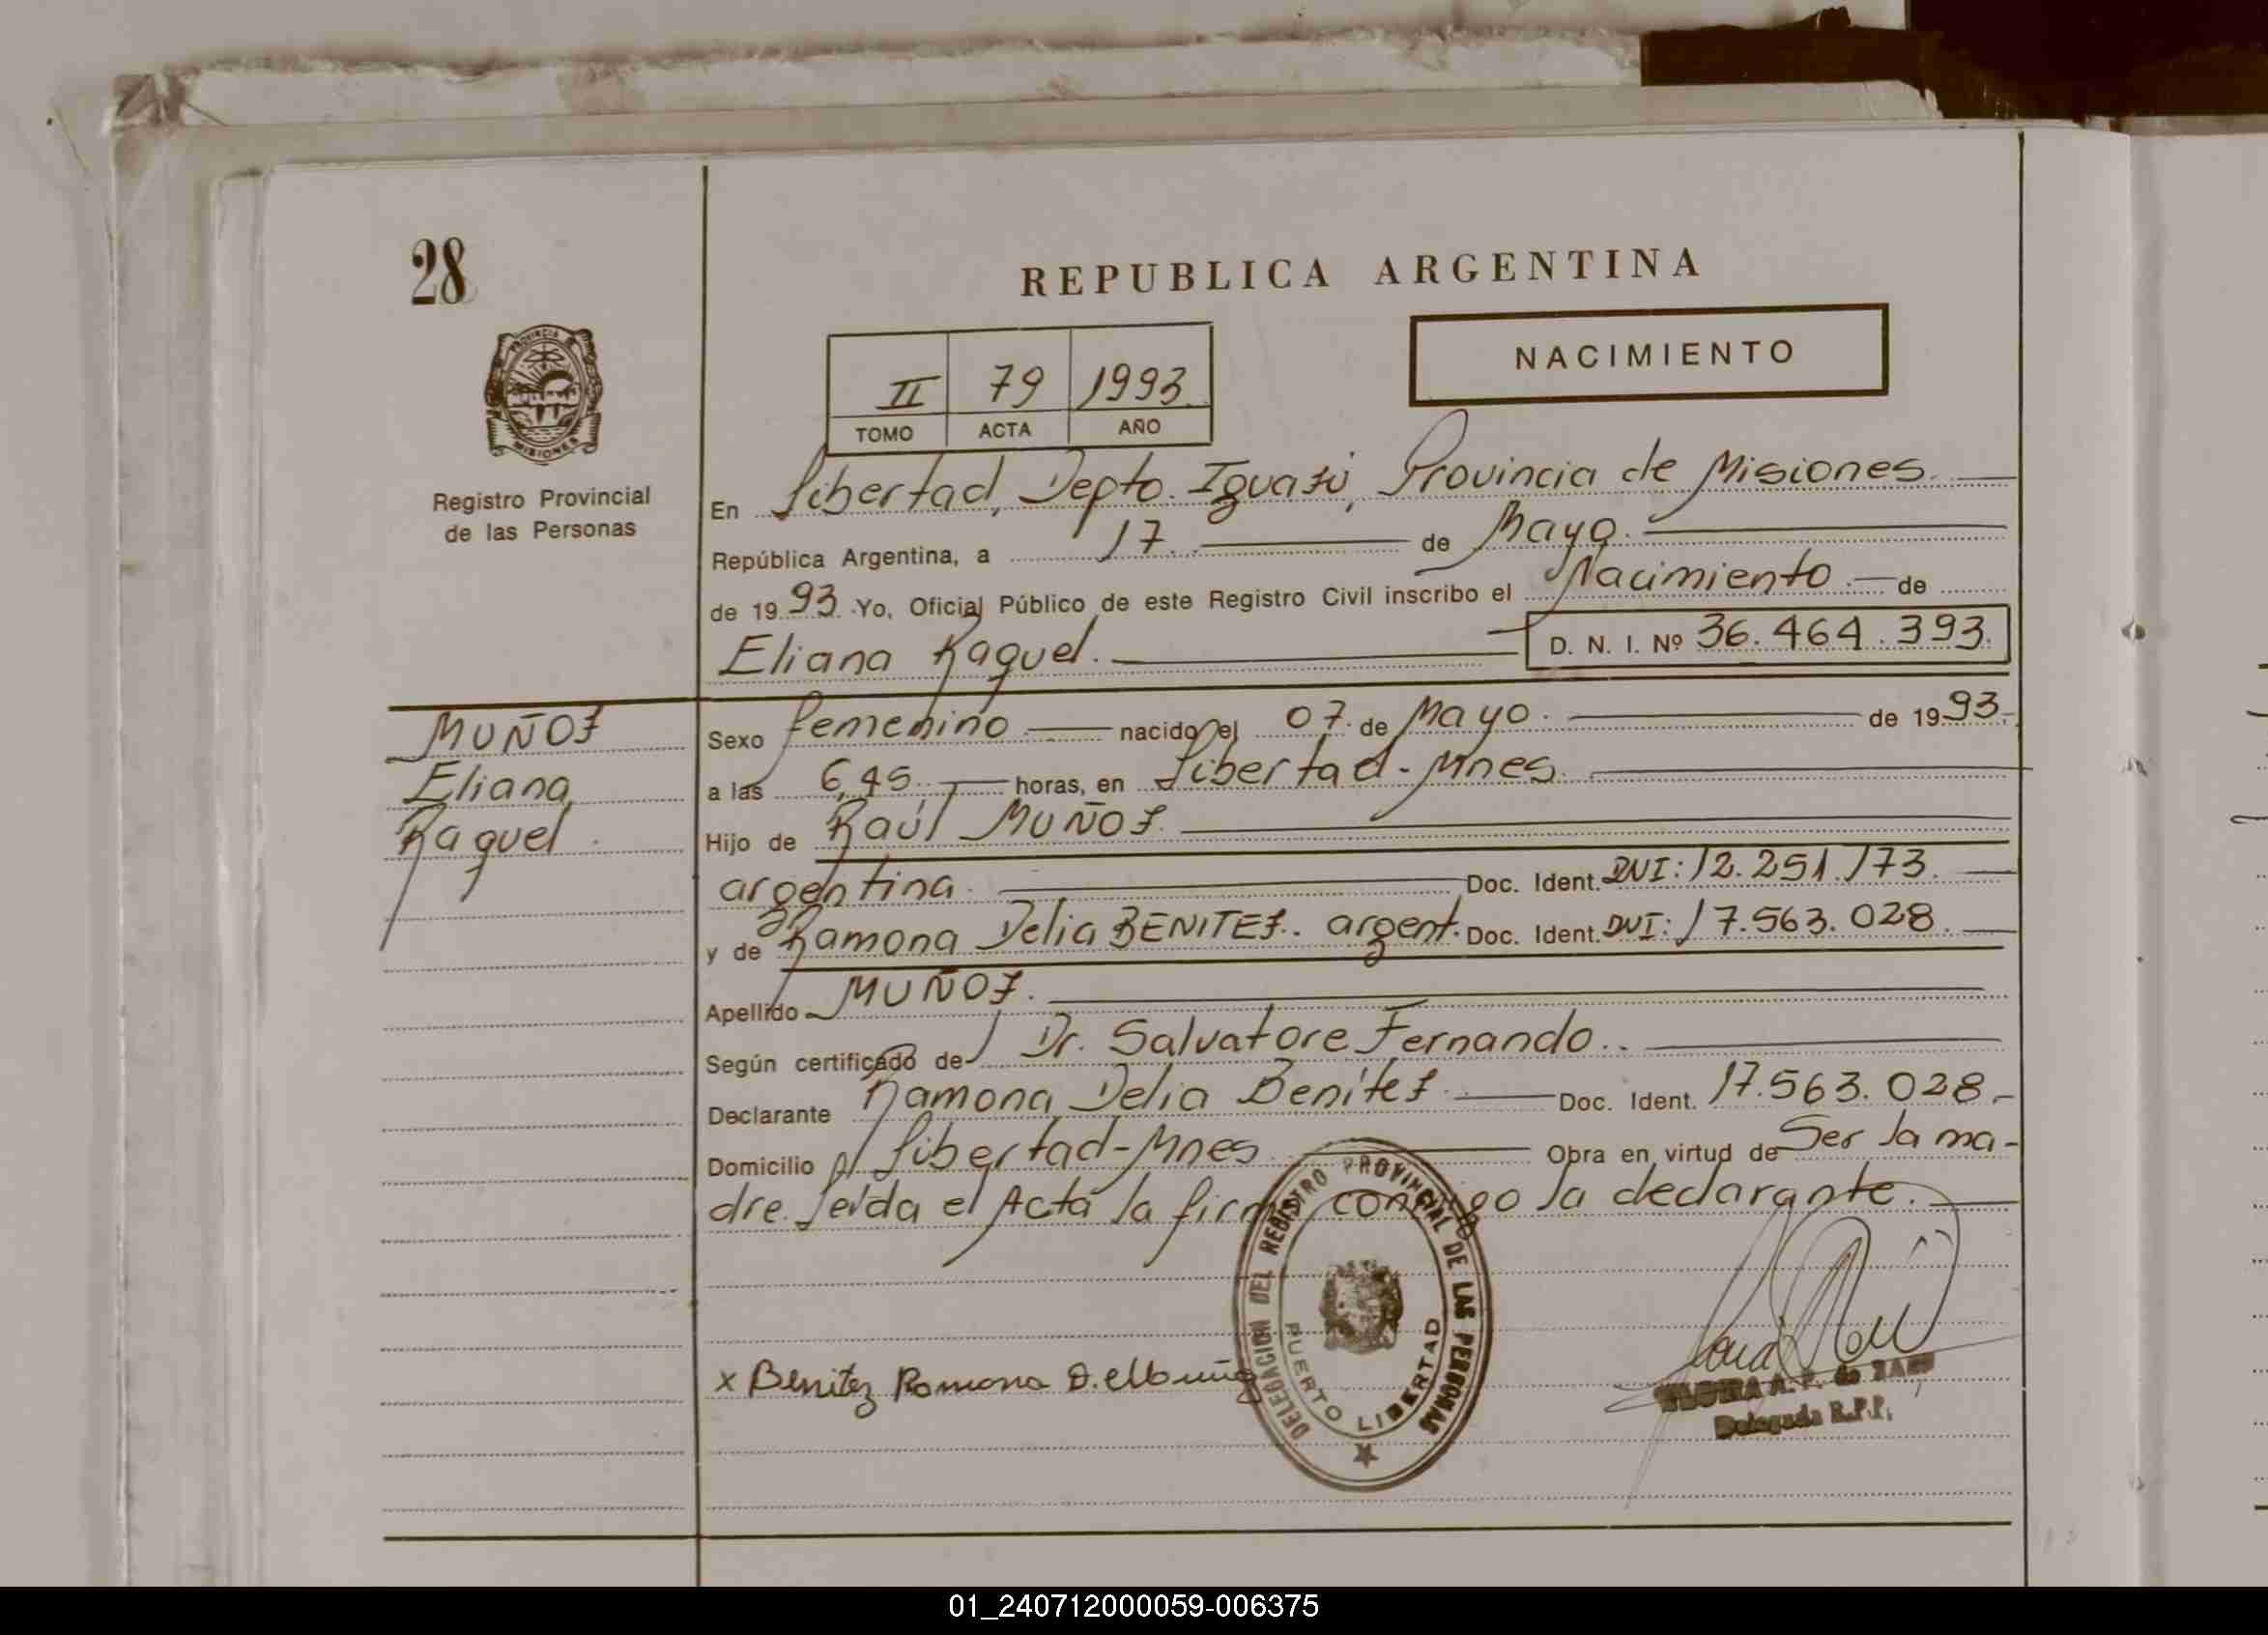 28
REPUBLICA ARGENTINA
NACIMIENTO
II 79 1993
TOMO ACTA AÑO
PROVINCIA DE
MISIONES
Registro Provincial
de las Personas
En Libertad, Depto. Iguazú, Provincia de Misiones.
República Argentina, a 17. de Mayo.
de 1993. Yo, Oficial Público de este Registro Civil inscribo el Nacimiento. de
Eliana Raquel. D. N. I. Nº 36.464.393.
MUÑOZ
Eliana
Raquel.
Sexo femenino nacido el 07. de Mayo. de 1993.
a las 6,45. horas, en Libertad-Mnes.
Hijo de Raúl MUÑOZ.
argentina. Doc. Ident. DNI: 12.251.173.
y de Ramona Delia BENITEZ. argent. Doc. Ident. DNI: 17.563.028.
Apellido MUÑOZ.
Según certificado de Dr. Salvatore Fernando..
Declarante Ramona Delia Benítez Doc. Ident. 17.563.028.-
Domicilio Libertad-Mnes. Obra en virtud de Ser la ma-
dre. Leída el Acta la firma conmigo la declarante.
DELEGACION DEL REGISTRO PROVINCIAL DE LAS PERSONAS
PUERTO LIBERTAD
x Benitez Ramona D. de
Delegada R.P.P.
01_240712000059-006375